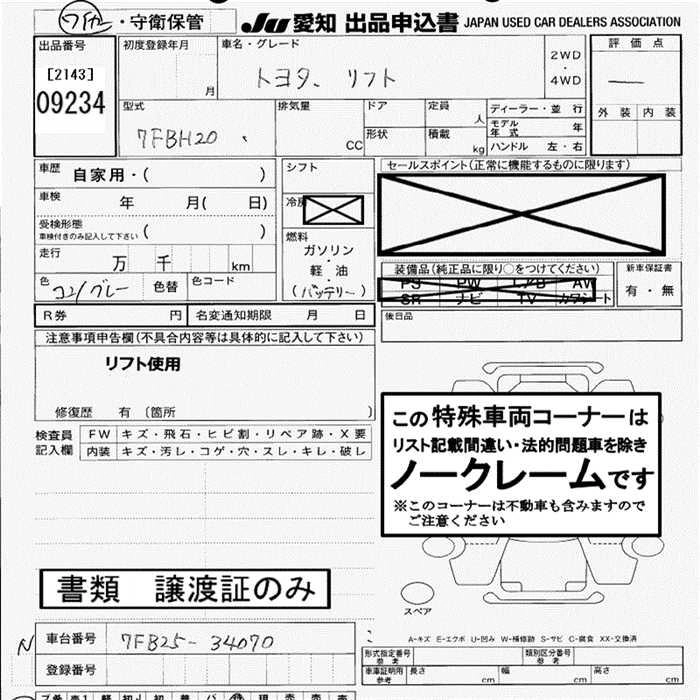 ・守衛保管
JU 愛知 出品申込書 JAPAN USED CAR DEALERS ASSOCIATION
出品番号
[2143]
09234
初度登録年月
月
車名・グレード
トヨタ、リフト
2WD
・
4WD
評価点
―
外装 内装
型式
7FBH20、
排気量
CC
ドア
形状
定員
人
積載
kg
ディーラー・並行
モデル年式 年
ハンドル 左・右
車歴 自家用・( )
車検 年 月( 日)
受検形態
車検付きのみ記入して下さい ( )
走行 万 千 km
色 コン/グレー 色替 色コード
シフト
冷房
燃料
ガソリン
・
軽・油
・
(バッテリー)
セールスポイント(正常に機能するものに限ります)
装備品(純正品に限り○をつけてください)
PS PW L/B AW
SR ナビ TV カワシート
新車保証書
有・無
後日品
R券 円 名変通知期限 月 日
注意事項申告欄(不具合内容等は具体的に記入して下さい)
リフト使用
修復歴 有 〔箇所 〕
検査員
記入欄
FW キズ・飛石・ヒビ割・リペア跡・X要
内装 キズ・汚レ・コゲ・穴・スレ・キレ・破レ
この特殊車両コーナーは
リスト記載間違い・法的問題車を除き
ノークレームです
※このコーナーは不動車も含みますので
ご注意ください
書類 譲渡証のみ
スペア
N
車台番号 7FB25-34070
登録番号
A-キズ E-エクボ U-凹み W-補修跡 S-サビ C-腐食 XX-交換済
形式指定番号
参考
類別区分番号
参考
車庫証明用
参考
長さ cm 幅 cm 高さ cm